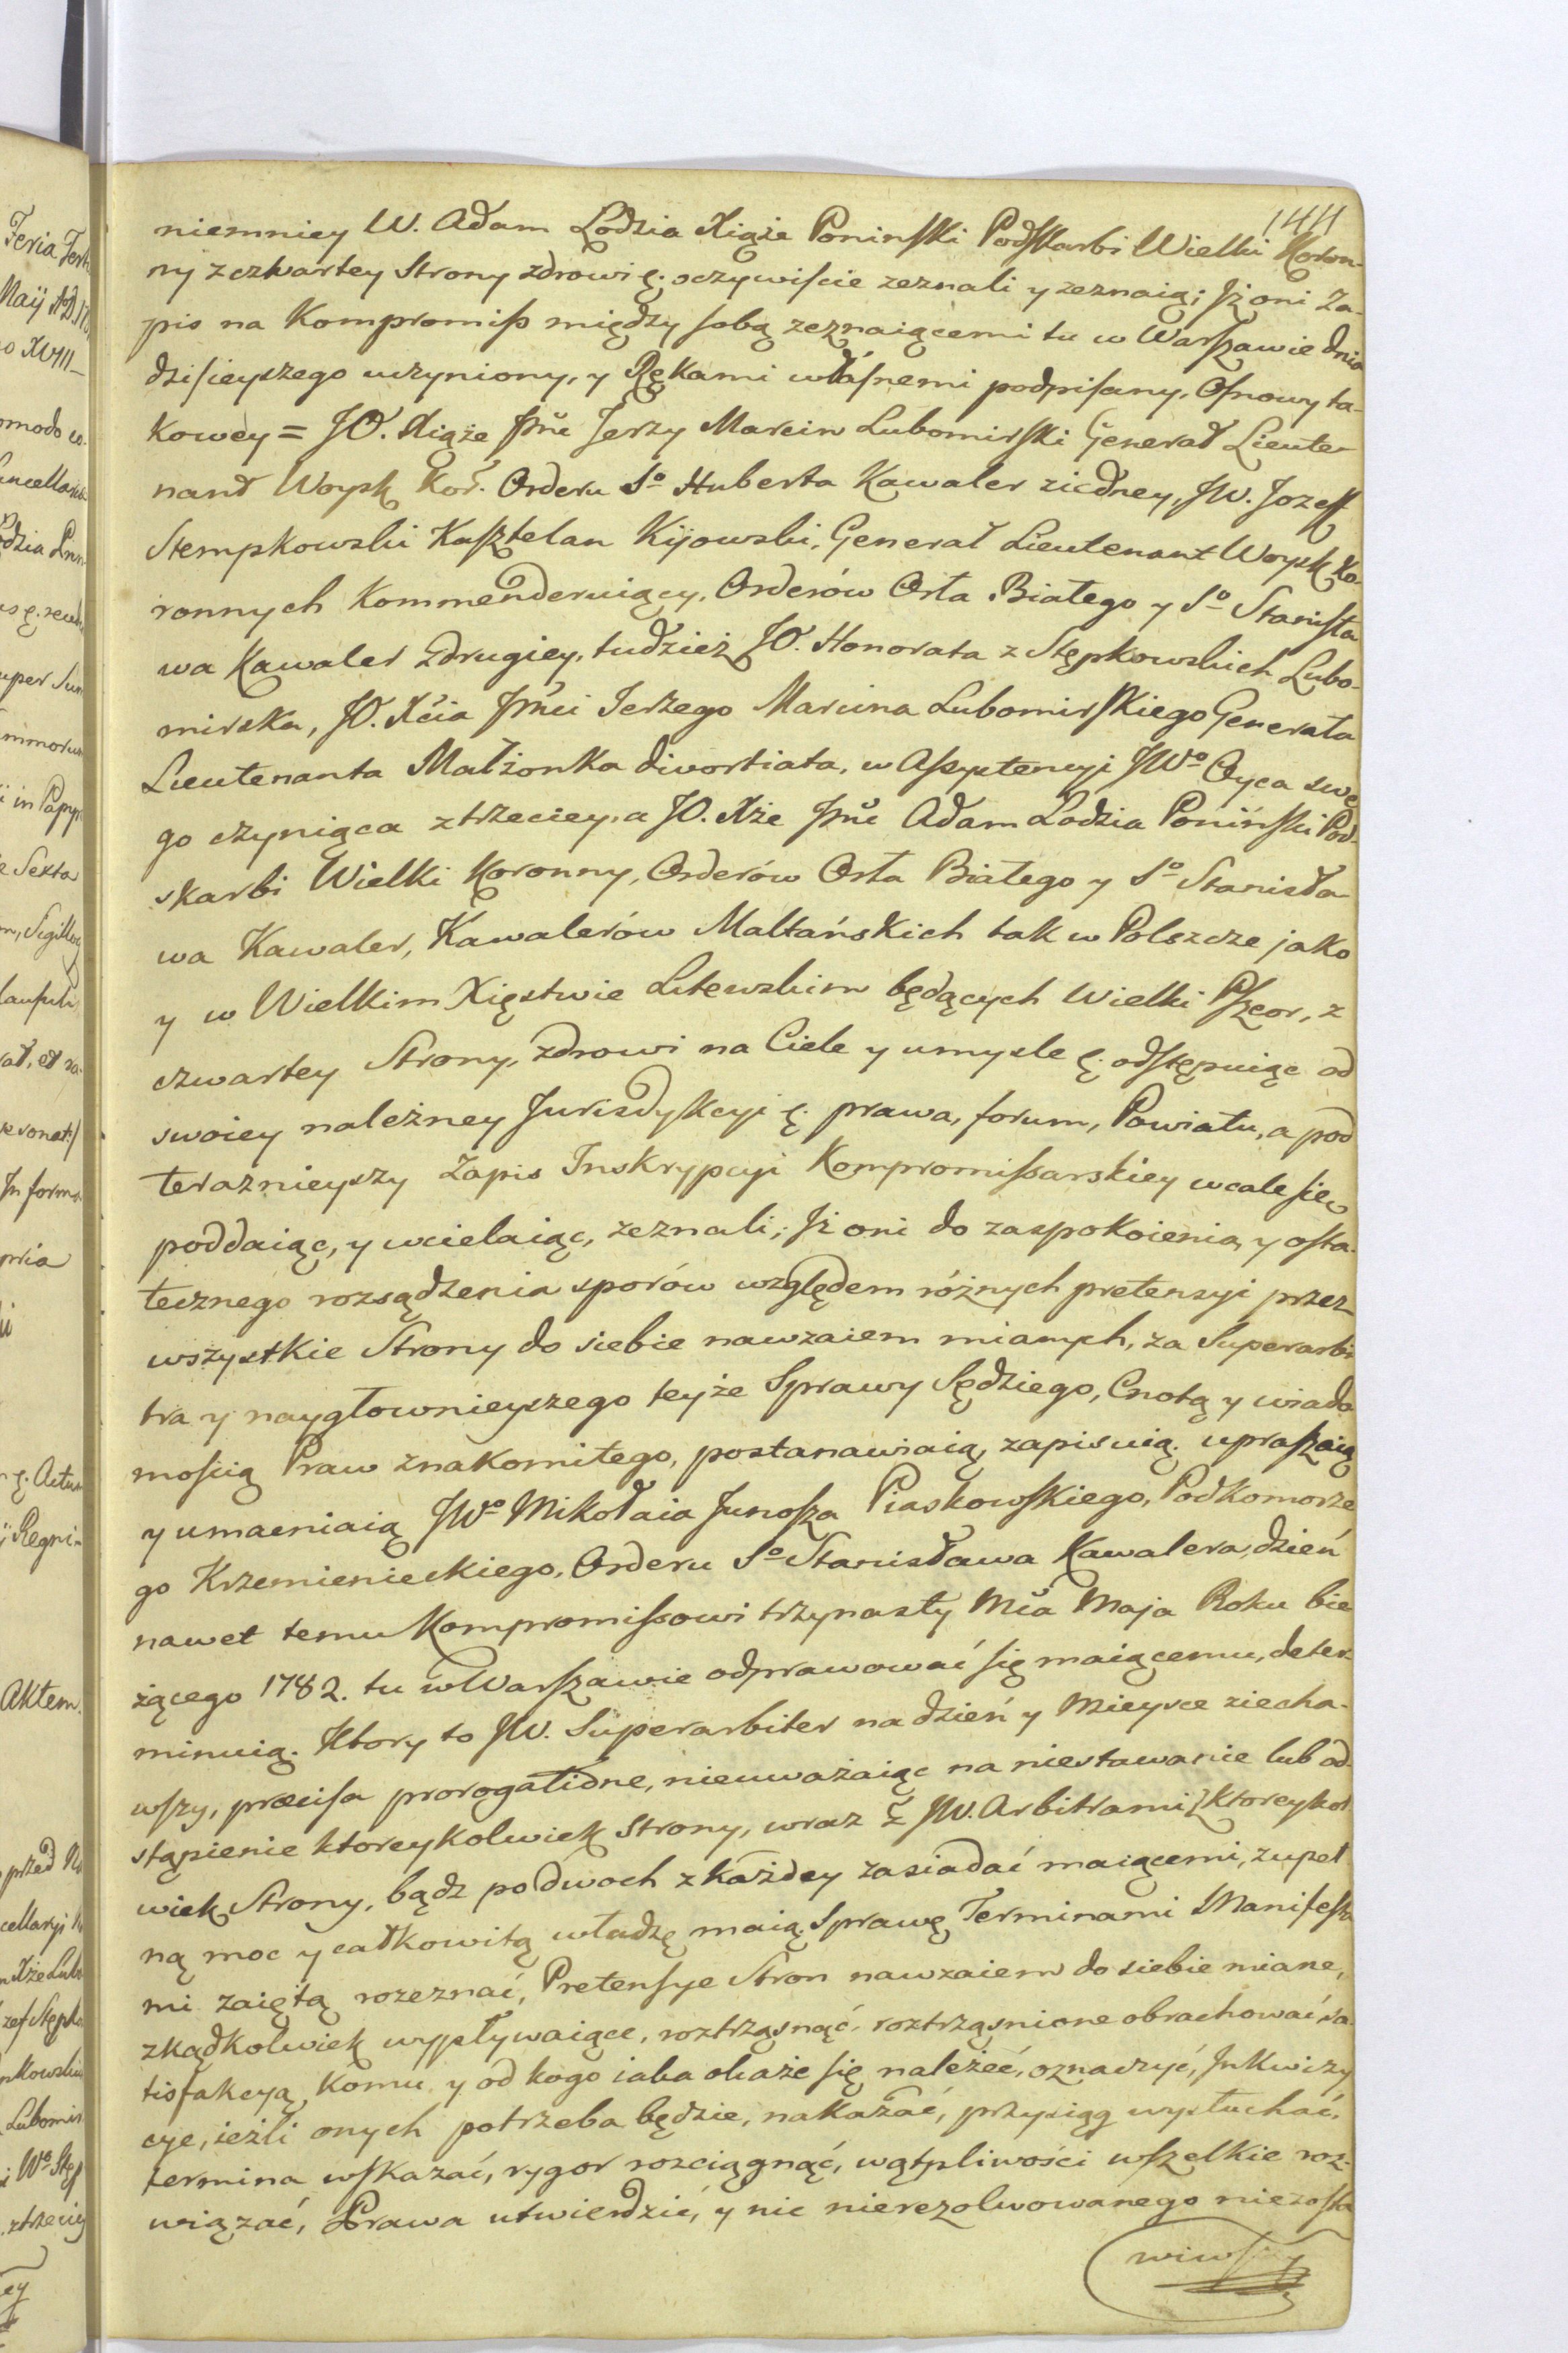 1411
niemniey W. Adam Lodzia Xiąże Poninski Podskarbi Wielki Koron-
ny z czwartey Strony zdrowi ę. oczywiście zeznali y zeznaią; Jż oni Za-
pis na Kompromiss między sobą zeznaiącemi tu w Warszawie dnia
dzisieyszego uczyniony, y Rękami własnemi podpisany, Osnowy ta-
kowey = JO. Xiąże Jmć Jerzy Marcin Lubomirski Generał Lieute-
nant Woysk Kor. Orderu So Huberta Kawaler ziedney, JW. Jozeff
Stempkowski Kasztelan Kijowski, Generał Lieutenant Woysk Ko-
ronnych Kommenderuiący, Orderów Orła Białego y So Stanisła
wa Kawaler zdrugiey, tudzież JO. Honorata z Stępkowskich Lubo-
mirska, JO. Xcia Jmci Jerzego Marcina Lubomirskiego Generała
Lieutenanta Małżonka divortiata, w Assystencyi JWo Oyca swe
go czyniąca z trzeciey, a JO. Xże Jmć Adam Lodzia Poniński Pod-
skarbi Wielki Koronny, Orderów Orła Białego y So Stanisła-
wa Kawaler, Kawalerów Maltańskich tak w Polszcze jako
y w Wielkim Xięstwie Litewskim będących Wielki Przeor, z
czwartey Strony, zdrowi na Ciele y umysle ę. odstępuiąc od
swoiey należney Jurisdykcyi ę. prawa, forum, Powiatu, a pod
teraznieyszy Zapis Inskrypcyi Kompromissarskiey wcale się
poddaiąc, y wcielaiąc, zeznali; Jż oni do zaspokoienia y osta-
tecznego rozsądzenia sporów względem różnych pretensyi przez
wszystkie Strony do siebie nawzaiem mianych, za Superarbi
tra y naygłownieyszego teyże Sprawy Sędziego, Cnotą y wiado
mością Praw znakomitego, postanawiaią, zapisuią, upraszaią
y umacniaią JWo Mikołaia Junosza Piaskowskiego, Podkomorze
go Krzemienieckiego, Orderu So Stanisława Kawalera, dzień
nawet temu Kompromissowi trzynasty Mca Maja Roku bie
żącego 1782. tu w Warszawie odprawować się maiącemu, deter
minuią. Ktory to JW. Superarbiter na dzień y Mieysce ziecha-
wszy, præcisa prorogatione, nieuważaiąc na niestawanie lub od-
stąpienie ktoreykolwiek Strony, wraz z JW. Arbitrami z ktoreykol
wiek Strony, bądz po dwoch z każdey zasiadać maiącemi, zupeł
ną moc y całkowitą władzę maią, Sprawę Terminami Manifesta
mi zaiętą rozeznać, Pretensye Stron nawzaiem do siebie miane,
zkądkolwiek wypływaiące, roztrząsnąć, roztrząsnione obrachować, sa
tisfakcyą, komu y od kogo iaka okaże się należeć, oznaczyć, Jnkwizy
cye, ieżli onych potrzeba będzie, nakazać, przysiąg wysłuchać,
termina wskazać, rygor rozciągnąć, wątpliwości wszelkie roz-
wiązać, Prawa utwierdzić, y nic nierezolwowanego niezosta
wiwszy